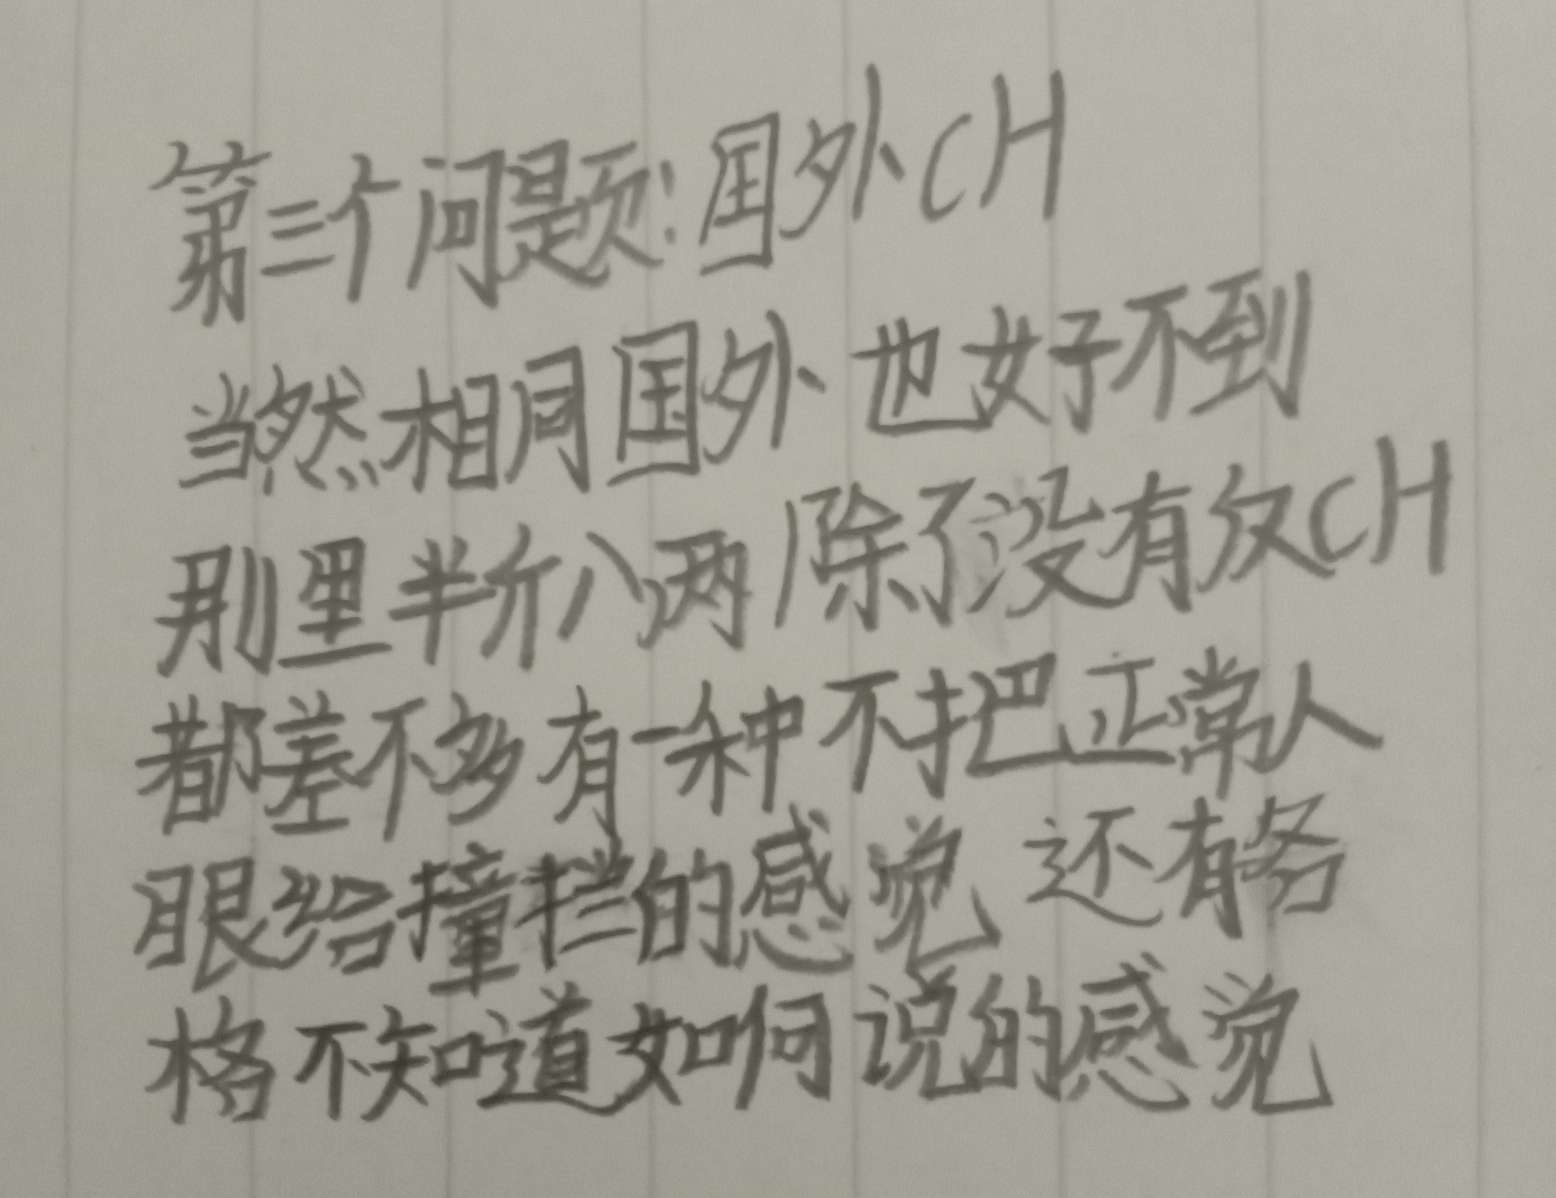 第三个问题:国外CH
当然相同国外也好不到
那里半斤八两除了没有仅CH
都差不多有一种不把正常人
眼给撞拦的感觉还有各
格不知道如何说的感觉